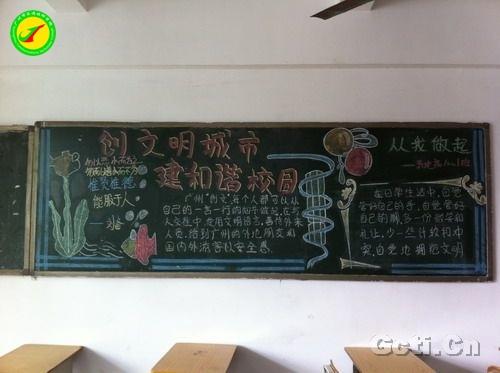 创文明城市
建和谐校园
勿以恶小而为之
勿以善小而不为
惟贤惟德
能服于人
—刘备
广州"创文",在个人都可以从
自己的一言一行的细节做起,在与
人交往中,应用文明语言,善待外来
人员,给到广州的外地朋友和
国内外游客以安全感
从我做起
在日学生活中,自觉
管好自己的手,自觉管好
自己的脚,多一份微笑和
礼让,少一些计较和冲
突,自觉地拥抱文明
Gcti.Cn